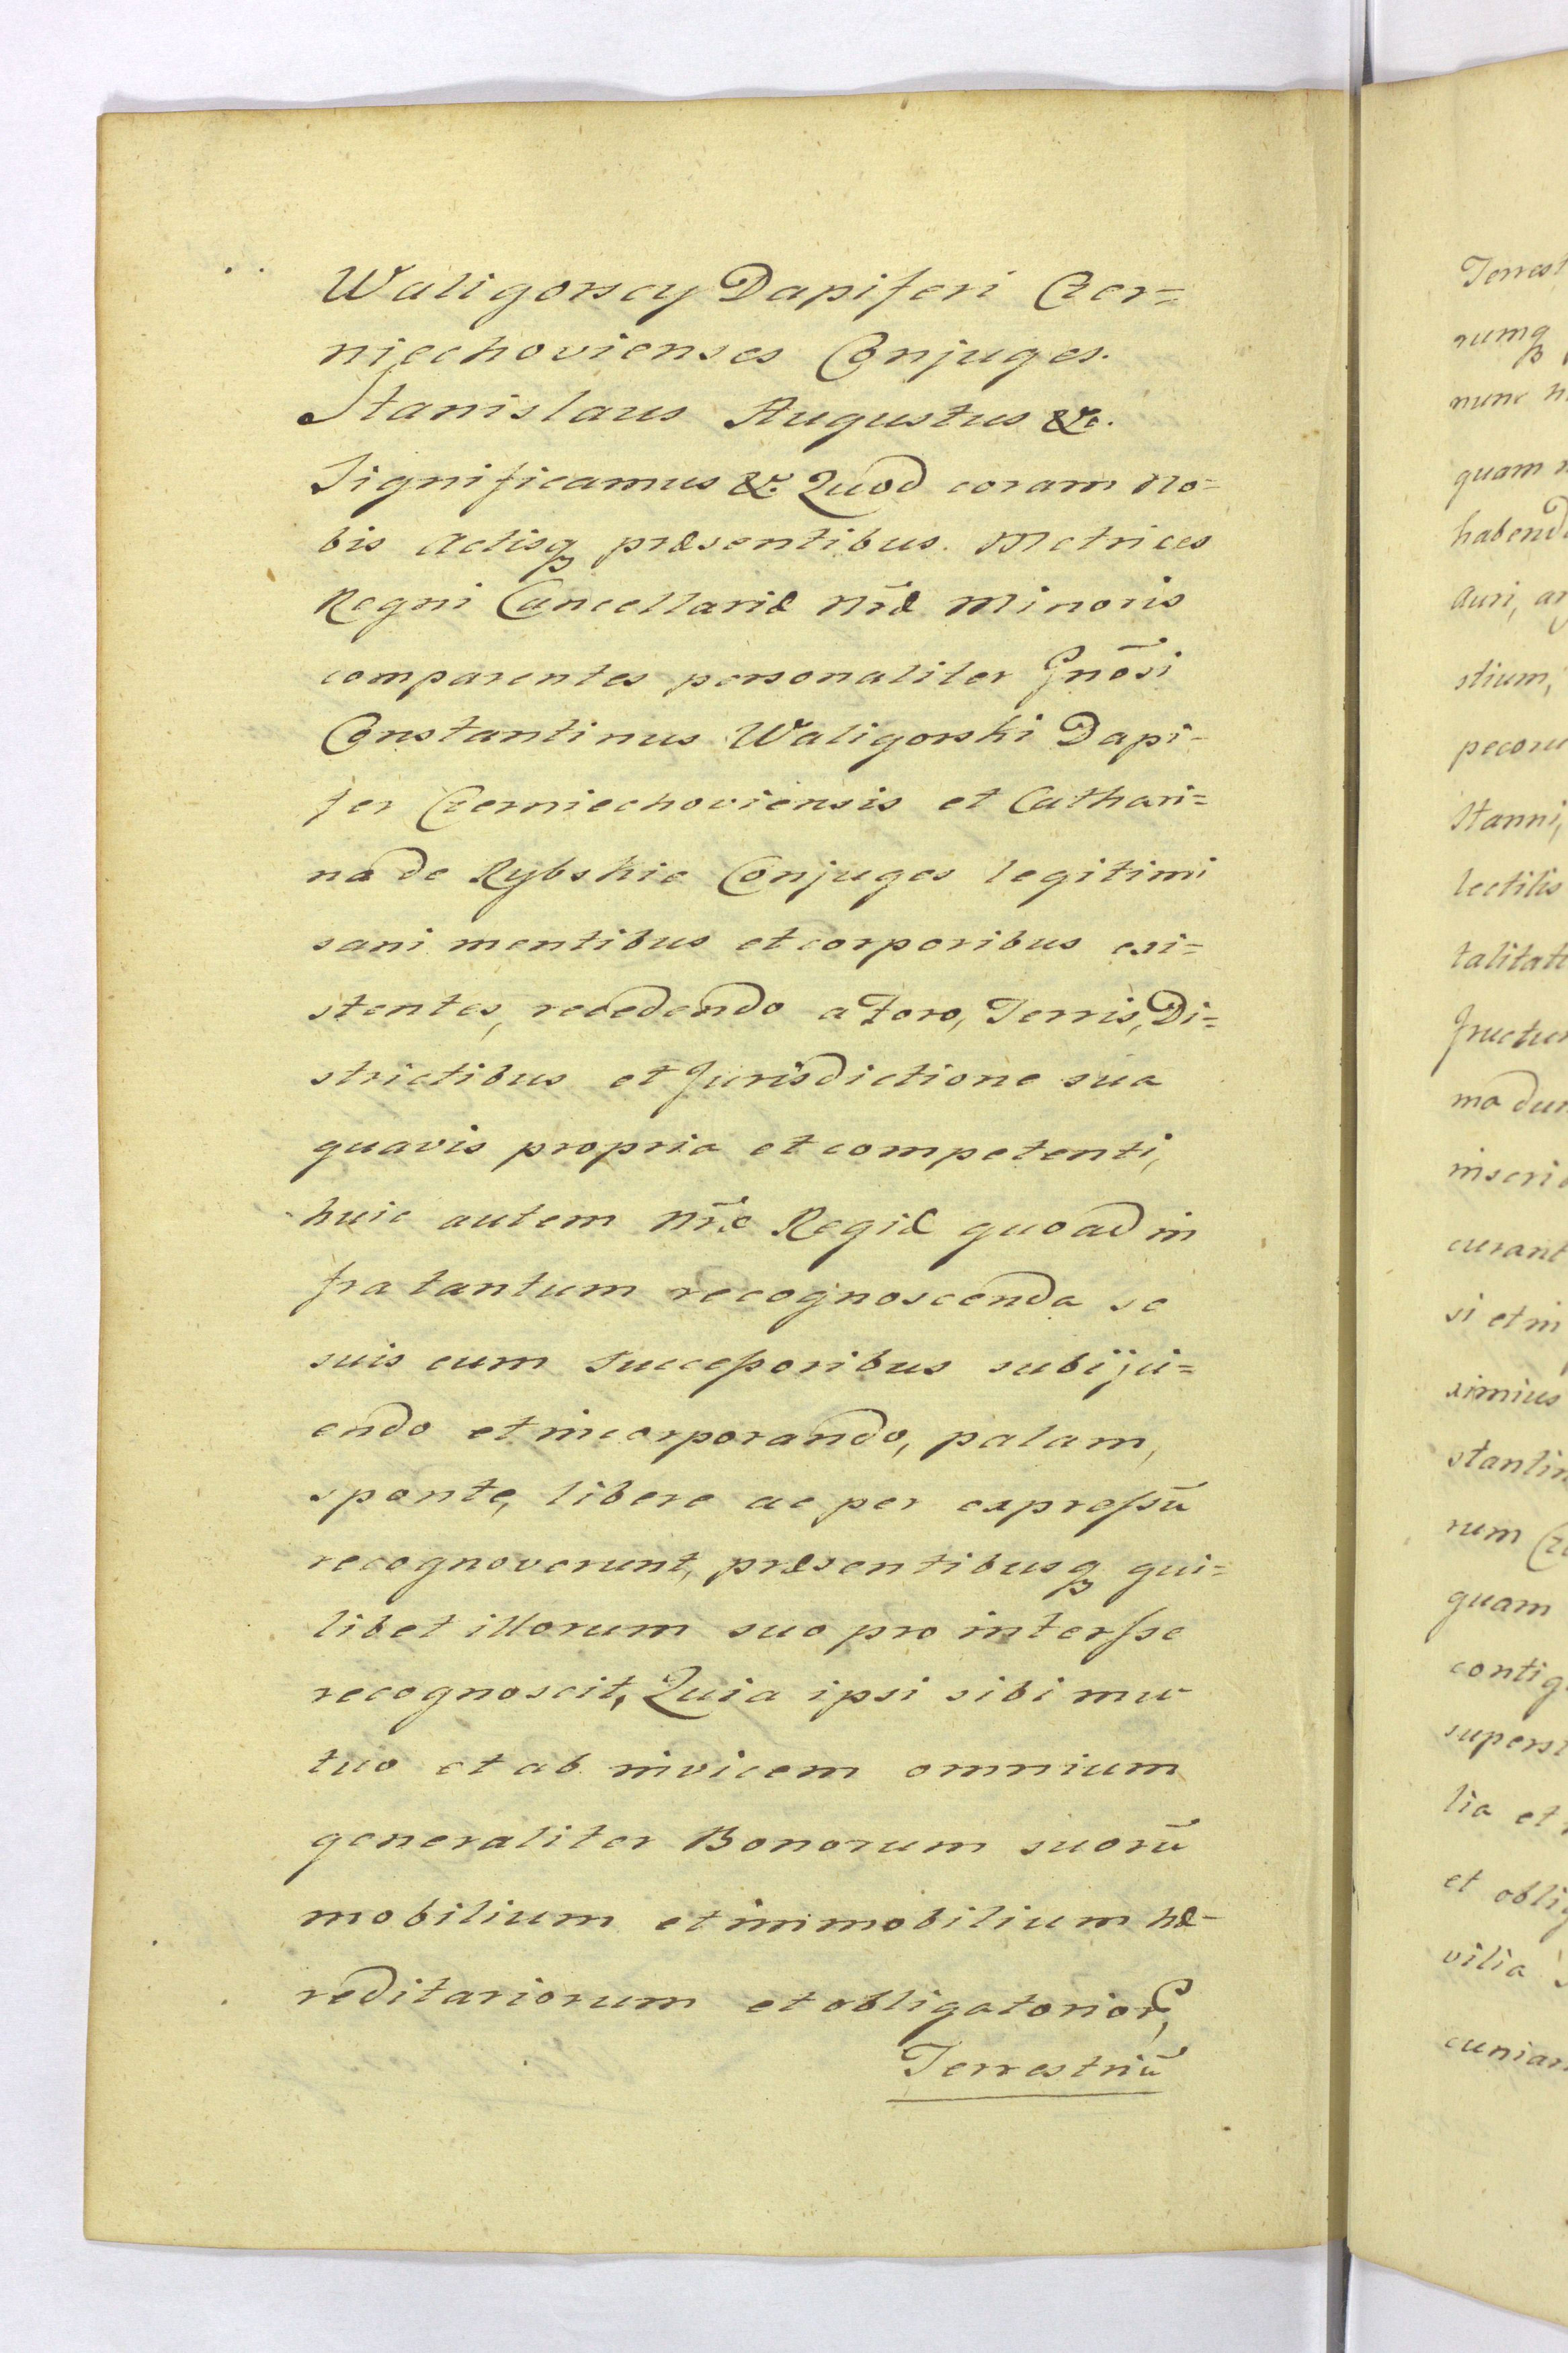 Waligorscy Dapiferi Czer=
niechovienses Conjuges.
Stanislaus Augustus &c.
Significamus &c. Quod coram No-
bis Actisq́ꝫ præsentibus. Metrices
Regni Cancellariæ Nr̃æ Minoris
comparentes personaliter Gnõsi
Constantinus Waligorski Dapi-
fer Czerniechoviensis et Cathari=
na de Rybskie Conjuges legitimi
sani mentibus et corporibus exi=
stentes, recedendo a Foro, Terris, Di=
strictibus et Jurisdictione sua
quavis propria et competenti,
huic autem Nr̃æ Regiæ quoad in
fra tantum recognoscenda se
suis cum Successoribus subijci=
endo et incorporando, palam,
sponte, libere ac per expressũ
recognoverunt, præsentibusqꝫ qui=
libet illorum suo pro intersse
recognoscit, Quia ipsi sibi mu-
tuo et ab invicem omnium
generaliter Bonorum suorũ
mobilium et immobilium hæ-
reditariorum et obligatorior̃,
Terrestriũ
Terrest
rumqꝫ
nunc
quam
habend
Auri, ar
stium,
pecoru
Stanni,
lectilis
talitati
fructu
ma dur
inscri
curant
si et in
ximius
stantin
rum Cz
quam
contig
superst
lia et
et oblig
vilia
cuniar